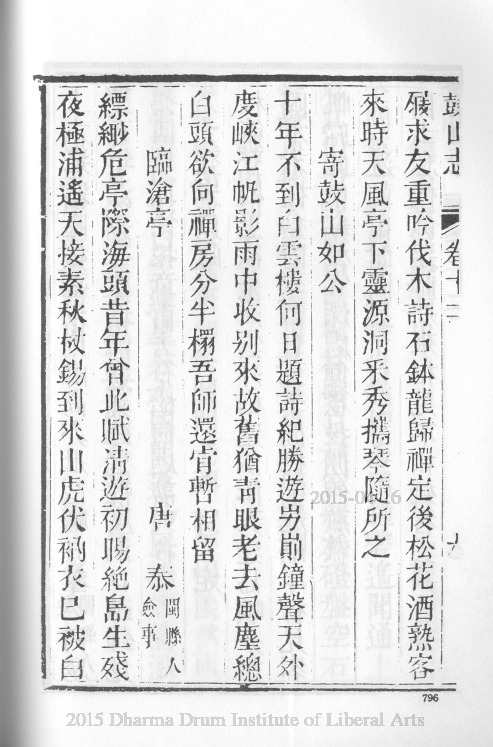 鼓山志 卷十二
屐求友重吟伐木詩石鉢龍歸禪定後松花酒熟客
來時天風亭下靈源洞釆秀攜琴隨所之
寄鼓山如公
十年不到白雲樓何日題詩紀勝遊屴崱鐘聲天外
度峽江帆影雨中收别來故舊猶青眼老去風塵總
白頭欲向禪房分半榻吾師還肯暫相留
臨滄亭 唐 泰 閩縣人 僉事
縹緲危亭際海頭昔年曾此賦清遊初暘絶島生殘
夜極浦遙天接素秋杖錫到來山虎伏衲衣已被白
796
2015 Dharma Drum Institute of Liberal Arts